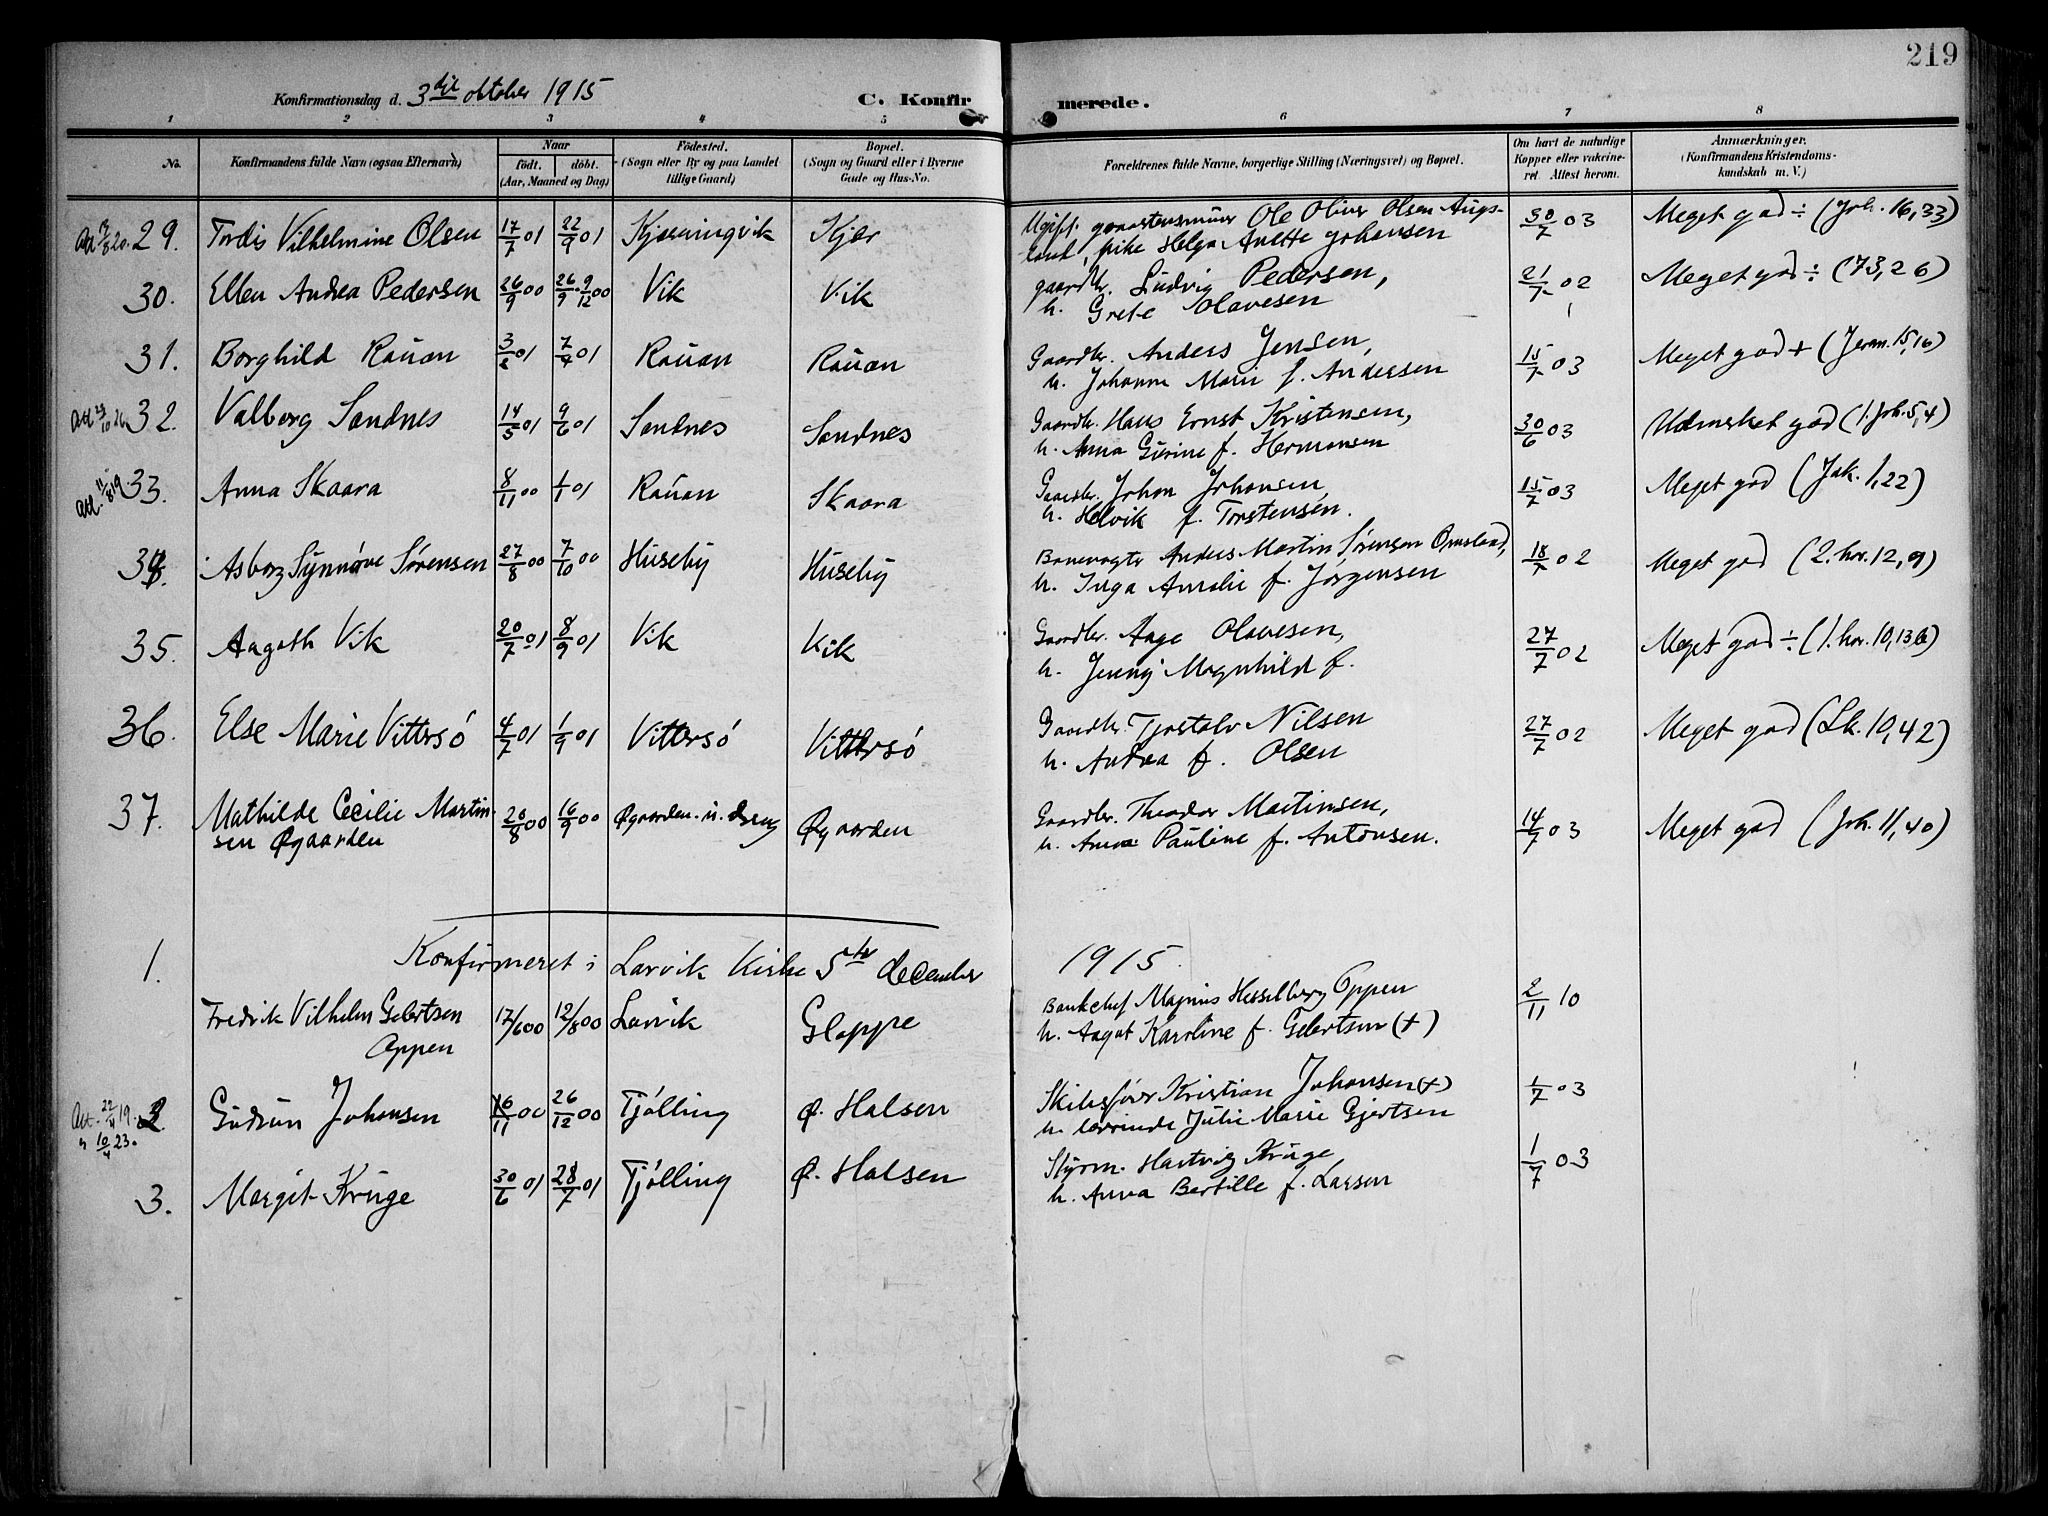 219
Konfirmationsdag d. 3die oktober 1915 C. Konfirmerede.
1 2 3 4 5 6 7 8
No.
Konfirmandens fulde Navn (ogsaa Efternavn)
Naar
født. døbt.
(Aar, Maaned og Dag)
Fødested.
(Sogn eller By og paa Landet
tillige Gaard)
Bopæl.
(Sogn og Gaard eller i Byerne
Gade og Hus-No.
Forældrenes fulde Navne, borgerlige Stilling (Næringsvei) og Bopæl.
Om havt de naturlige
Kopper eller vakcine-
ret. Attest herom.
Anmærkninger.
(Konfirmandens Kristendoms-
kundskab m. V.)
29. Tordis Vilhelmine Olsen 17/7 01 22/9 01 Kjønningvik Kjær Ugift. Ole Oliver Olsen Augs-
land, pike Helga Anette Johansen 30/7 03 Meget god ÷ (Joh. 16,33)
30. Ellen Andrea Pedersen 26/9 00 26/9 - 9/12 00 Vik Vik gaardbr. Ludvig Pedersen,
h. Grete Olavesen 21/7 02 Meget god ÷ (73,26)
31. Borghild Rauan 3/2 01 7/4 01 Rauan Rauan Gaardbr. Anders Jensen,
h. Johanne Marie f. Andersen 15/7 03 Meget god + (Jerem. 15,16)
Att 32. Valborg Sandnes 14/5 01 9/6 01 Sandnes Sandnes Gaardbr. Hans Ernst Kristensen,
h. Anna Gurine f. Hermansen 30/6 03 Udmerket god (1. Joh. 5,4)
Att. 11/8 19. 33. Anna Skaara 8/11 00 1/1 01 Rauan Skaara Gaardbr. Johan Johansen,
h. Helvik f. Torstensen. 15/7 03 Meget god (Jak. 1,22)
34. Asborg Synnøve Sørensen 27/8 00 7/10 00 Huseby Huseby Banevogter Anders Martin Sørensen Ormsland,
h. Inga Amalie f. Jørgensen 18/7 02 Meget god (2. kor. 12,9)
35. Aagoth Vik 20/7 01 8/9 01 Vik Vik Gaardbr. Aage Olavesen,
h. Jenny Magnhild f. 27/7 02 Meget god ÷ (1. kor. 10,13b)
36. Else Marie Vittersó 4/7 01 1/9 01 Vittersó Vittersó Gaardbr. Tjostolv Nilsen
h. Andrea f. Olsen 27/7 02 Meget god (Lk. 10,42)
37. Mathilde Cecilie Martin-
sen Øgaarden 20/8 00 16/9 00 Øgaarden Øgaarden Gaardbr. Theodor Martinsen,
h. Anna Pauline f. Antonsen. 14/7 03 Meget god (Joh. 11,40)
Konfirmeret i Larvik Kirke 5te december 1915.
1. Fredrik Vilhelm Gebertsen
Oppen 17/6 00 12/8 00 Larvik Gloppe Bankchef Magnus Hesselberg Oppen
h. Aagot Karoline f. Gebertsen (+) 2/11 10
Att. 22/4 19. 2 Gudrun Johansen 16/11 00 26/12 00 Tjølling Ø. Halsen Skibsfører Kristian Johansen (+)
h. lærerinde Julie Marie Gjertsen 1/7 03
" 10/4 23.
3. Margit Kruge 30/6 01 28/7 01 Tjølling Ø. Halsen Styrm. Hartvig Kruge,
h. Anna Bertille f. Larsen 1/7 03